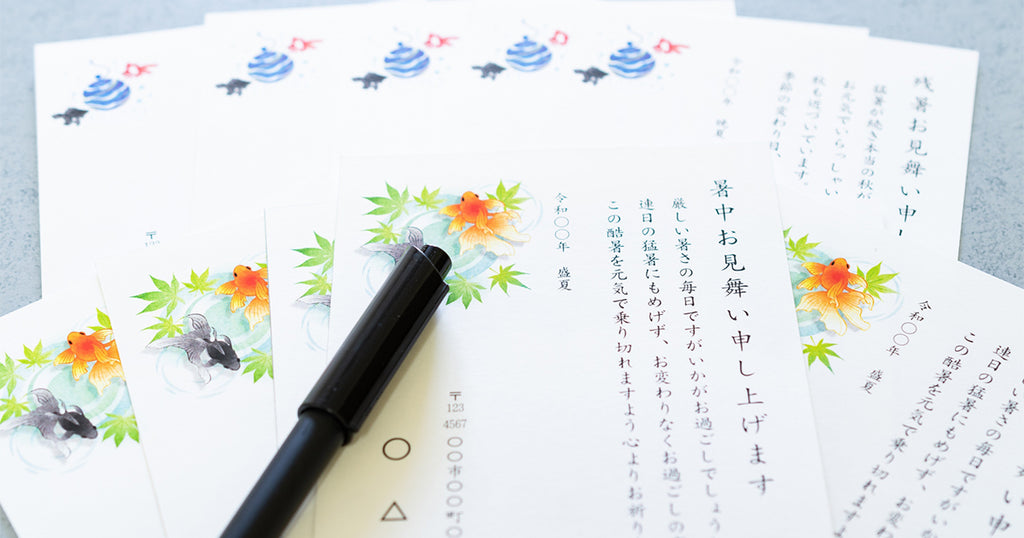 暑中お見舞い申し上げます
厳しい暑さの毎日ですがいかがお過ごしでしょう
連日の猛暑にもめげず、お変わりなくお過ごしの
この酷暑を元気で乗り切れますよう心よりお祈り
令和〇〇年 盛夏
〒123 4567 〇〇市〇〇町〇
〇 △
残暑お見舞い申し
猛暑が続き本当の秋が
お元気でいらっしゃい
秋も近づいています。
季節の変わり目、
令和〇〇年 晩夏
〒123
い暑さの毎日ですがいか
連日の猛暑にもめげず、お変わ
この酷暑を元気で乗り切れます
令和〇〇年 盛夏